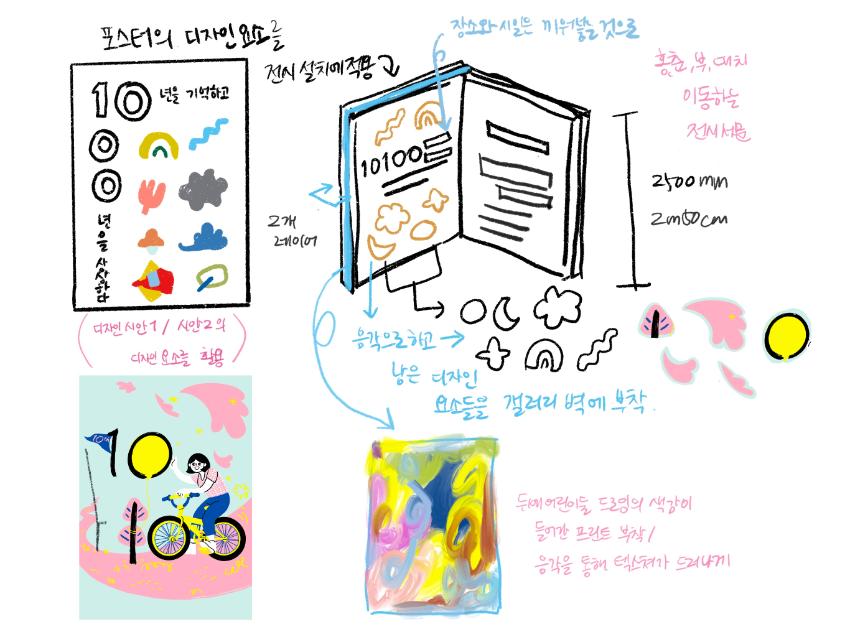 포스터의 디자인요소를
전시 설치에 적용
장소와 시일은 끼워넣을 것으로
이동하는
전시 서문
10
년을 기억하고
0
0
년을 사
다
10100
2개
레이어
2500mm
2m50cm
디자인 시안1 / 시안2의
디자인 요소를 활용
음각으로하고
남은 디자인
요소들을 갤러리 벽에 부착.
10
뒤에 어린이들 드로잉의 색감이
들어간 프린트 부착/
음각을 통해 텍스쳐가 드러나게